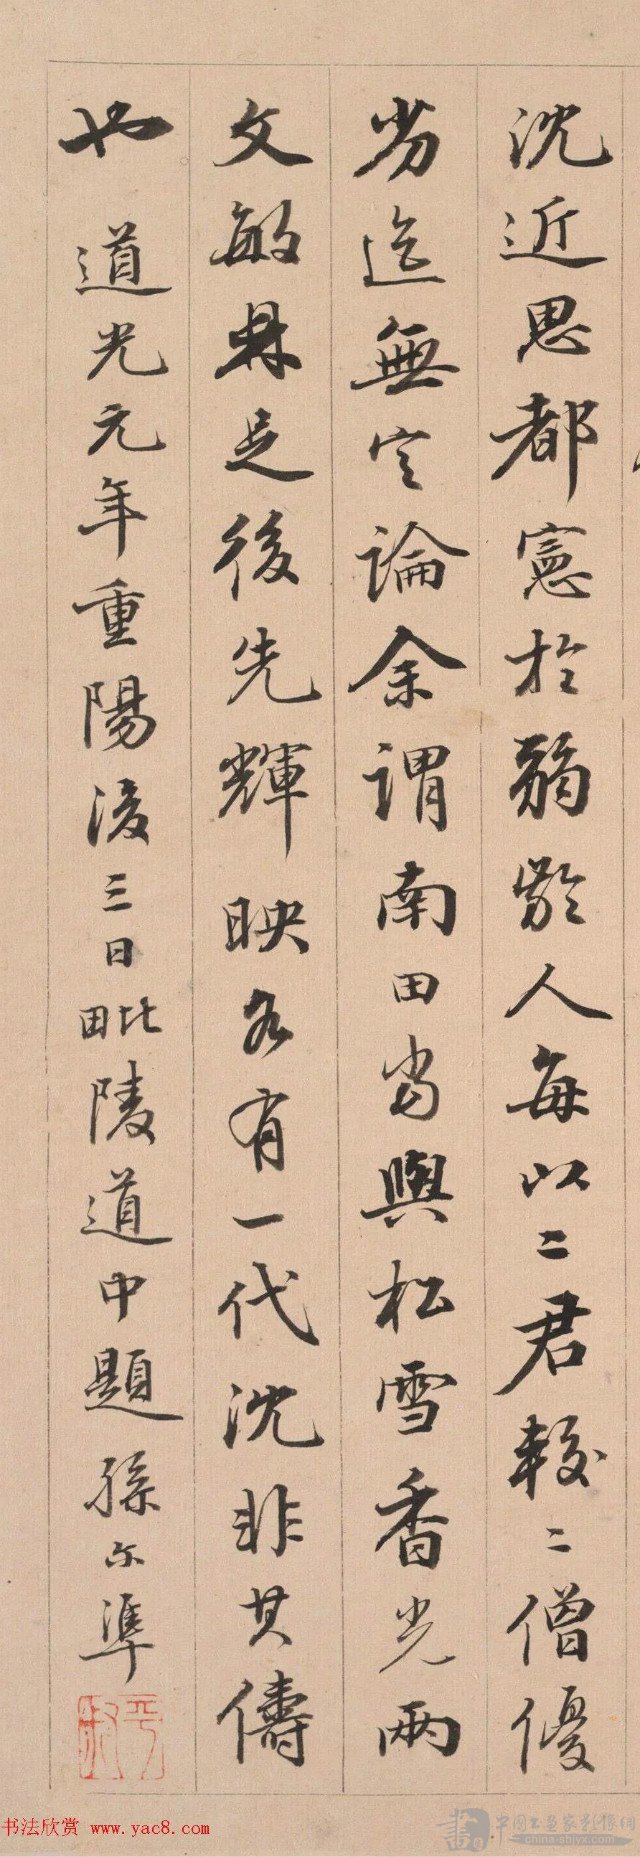 沈近思都憲於弱齡人每以二君較二僧優
劣迄無定論余謂南田當與松雪香光兩
文敏鼎足後先輝映各有一代沈非其儔
也 道光元年重陽後三日毗陵道中題孫尔準
平叔
书法欣赏 www.yac8.com
中国书画家影像网